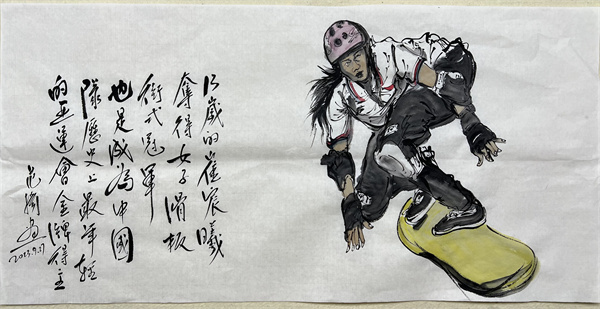 13歲的崔宸曦
奪得女子滑板
街式冠軍
也是成為中國
隊歷史上最年輕
的亚運會金牌得主
2023.9.27